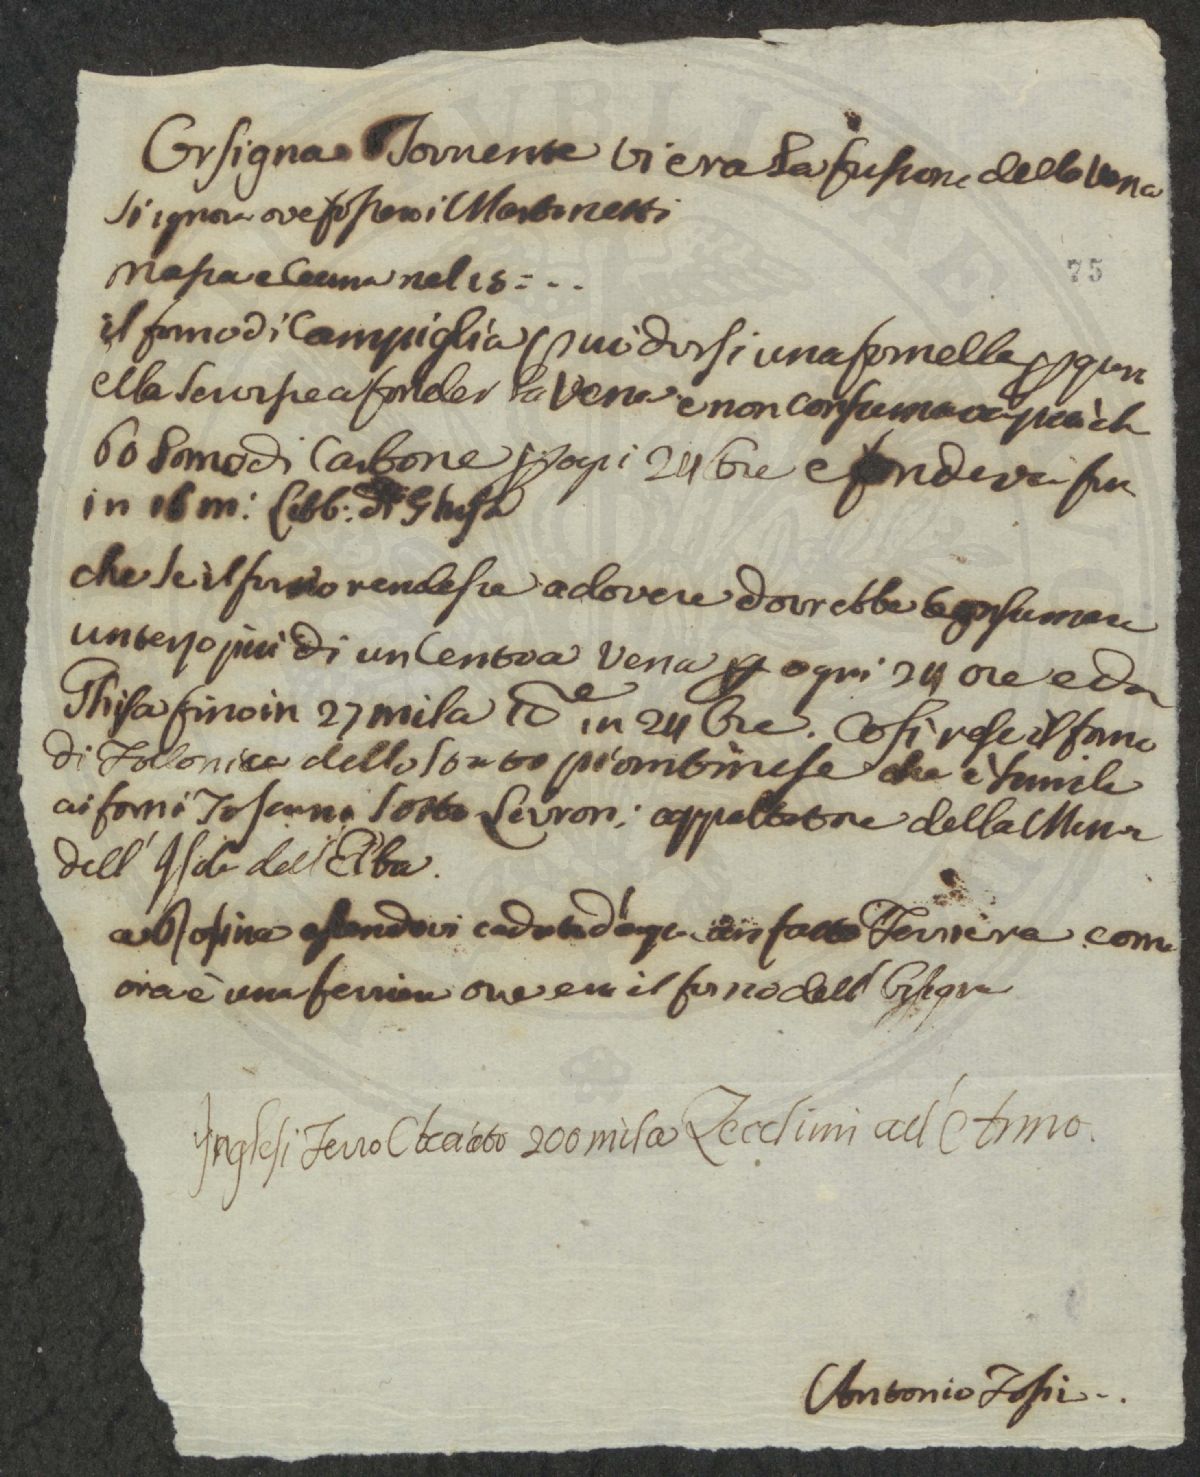 Orsigna Torrente vi era La fusione della Vena
si ignora ove fossero i Martinetti
Massa e Cecina nel 18 = . .
75
il forno di Campiglia può dirsi una fornella p quan
ella servisse a fonder la Vena e non consumava più che
60 Some di Carbone p ogni 24 Ore e fondeva fin
in 16 m: Libb: di Ghisa
che se il forno rendesse a dovere dovrebbe consumare
un terzo più di un Centoa Vena p ogni 24 ore e da
Ghisa fino in 27 mila in 24 Ore. Così rese il forno
di Follonica dello Stato piombinese che è simile
ai forni Toscani sotto Levroni appaltatore della Mina
dell' Isola dell' Elba.
a Rosina essendovi caduta d'acqua an fatto Ferriera come
ora è una ferriera ove era il forno dell' Orsigna
Inglesi Ferro 200 mila Zecchini all' Anno.
Antonio Tosi . .